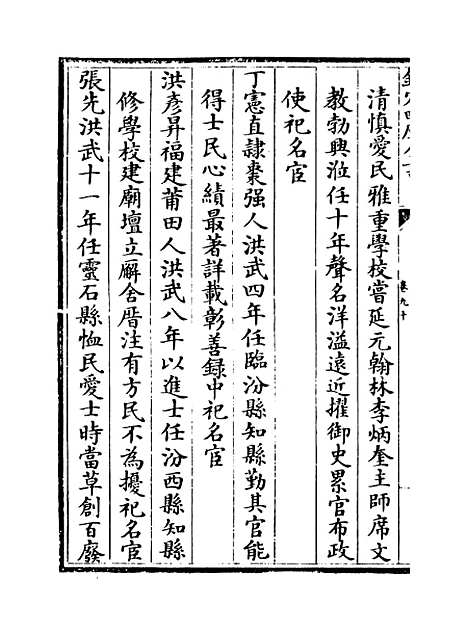 欽定四庫全書
卷九十
清慎愛民雅重學校嘗延元翰林李炳奎主師席文
教勃興涖任十年聲名洋溢遠近擢御史累官布政
使祀名宦
丁憲直隷棗强人洪武四年任臨汾縣知縣勤其官能
得士民心績最著詳載彰善録中祀名宦
洪彦昇福建莆田人洪武八年以進士任汾西縣知縣
修學校建廟壇立廨舍厝注有方民不為擾祀名宦
張先洪武十一年任靈石縣恤民愛士時當草創百廢